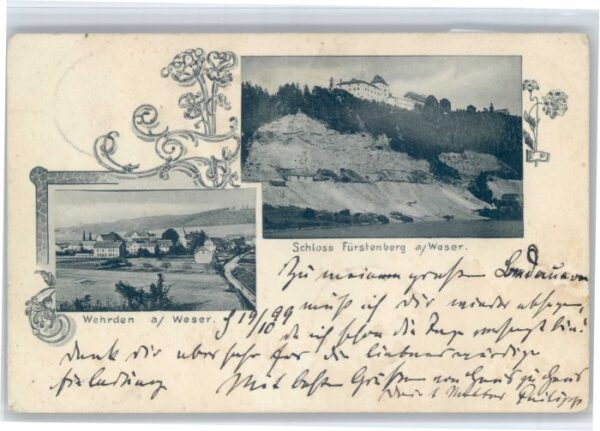 Schloss Fürstenberg a/Weser.
Wehrden a/ Weser.
19/10 99
Zu meinem großen Bedauern
muß ich dir wieder absagen,
da ich schon die Tage versagt bin!
dank dir aber sehr für die liebenswürdige
Einladung
Mit besten Grüßen von Haus zu Haus
Philipp